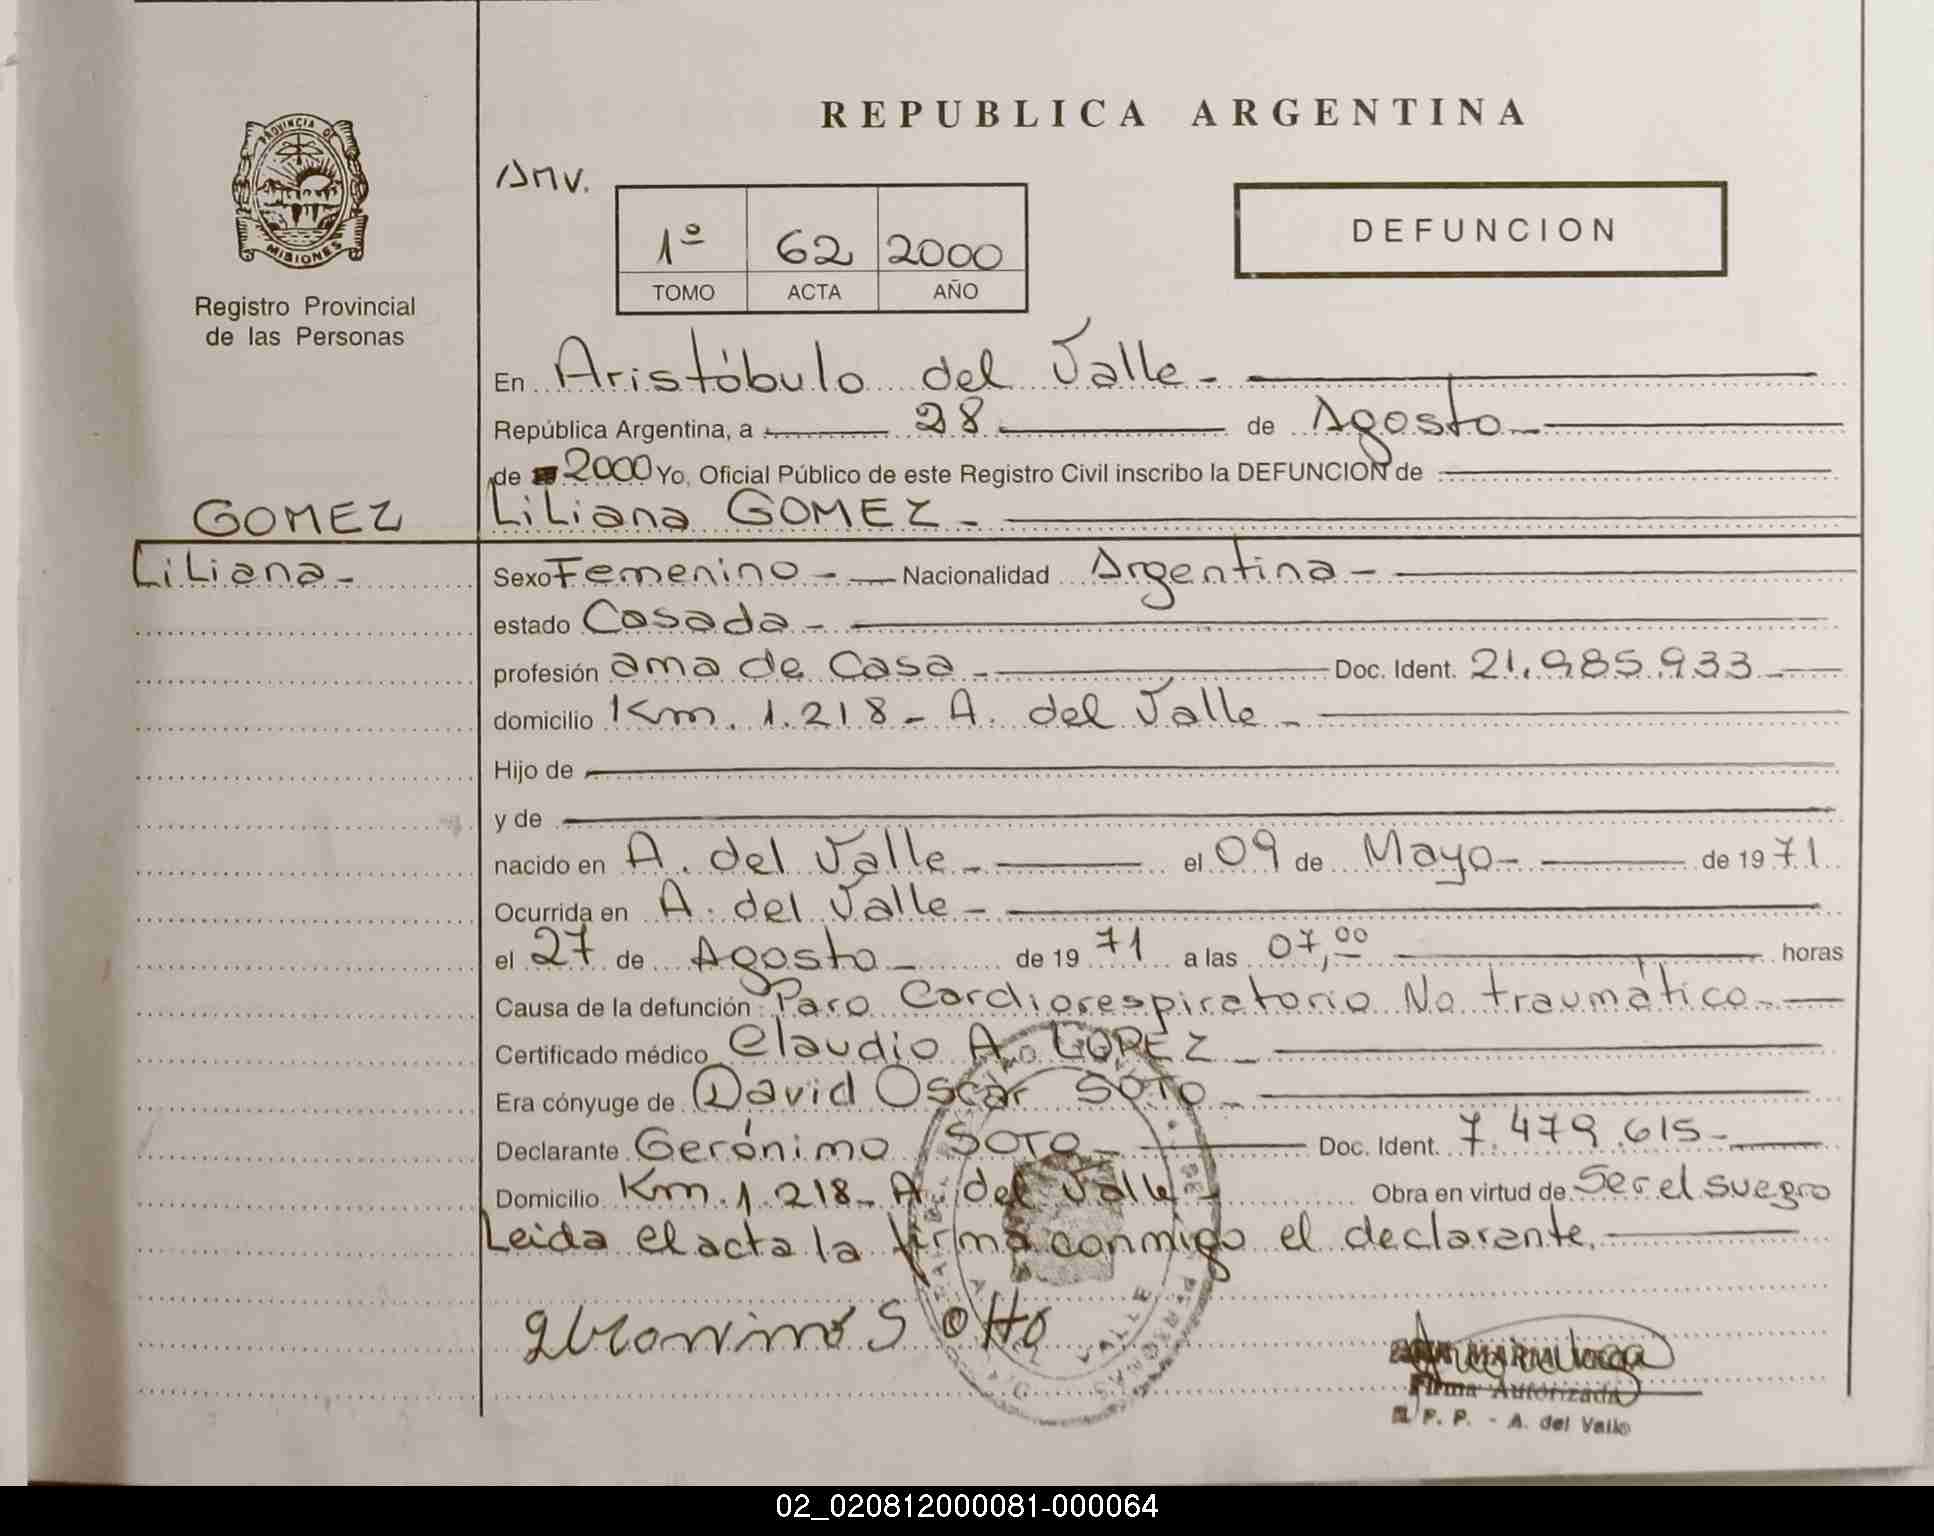 REPUBLICA ARGENTINA
PROVINCIA DE
MISIONES
Registro Provincial
de las Personas
AMV.
1º 62 2000
TOMO ACTA AÑO
DEFUNCION
En Aristóbulo del Valle -
República Argentina, a 28 de Agosto -
de 2000 Yo, Oficial Público de este Registro Civil inscribo la DEFUNCION de
GOMEZ
LiLiana GOMEZ -
LiLiana -
Sexo Femenino - Nacionalidad Argentina -
estado Casada -
profesión ama de Casa - Doc. Ident. 21.985.933 -
domicilio Km. 1.218 - A. del Valle -
Hijo de
y de
nacido en A. del Valle - el 09 de Mayo - de 1971
Ocurrida en A. del Valle -
el 27 de Agosto - de 1971 a las 07,00 horas
Causa de la defunción Paro Cardiorespiratorio No traumático -
Certificado médico Claudio A. LOPEZ -
Era cónyuge de David Oscar SOTO -
Declarante Gerónimo SOTO - Doc. Ident. 7.479.615 -
Domicilio Km. 1.218 - A. del Valle - Obra en virtud de Ser el suegro
Leida el acta la firma conmigo el declarante.
Firma Autorizada
R. P. P. - A. del Valle
02_020812000081-000064